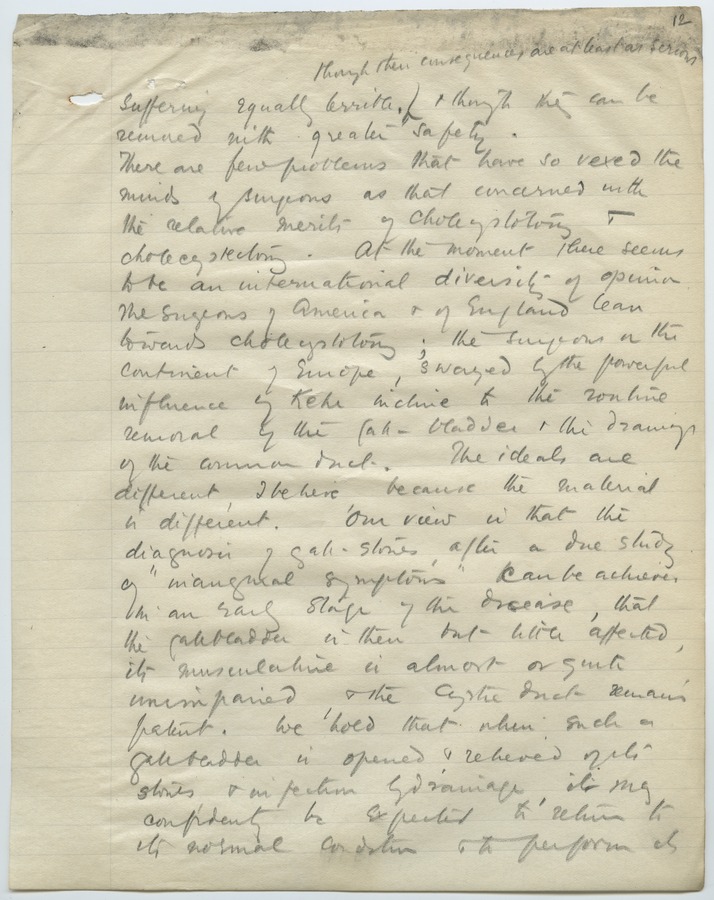 12
though their consequences are at least as serious
suffering equally terrible, & though they can be
removed with greater safety.
There are few problems that have so vexed the
minds of surgeons as that concerned with
the relative merits of cholecystotomy &
cholecystectomy. At the moment there seems
to be an international diversity of opinion
The surgeons of America & of England lean
towards cholecystotomy; the surgeons on the
continent of Europe, swayed by the powerful
influence of Kehr incline to the routine
removal of the gall-bladder & the drainage
of the common duct. The ideals are
different, I believe because the material
is different. Our view is that the
diagnosis of gall-stones, after a due study
of "inaugural symptoms" can be achieved
in an early stage of the disease, that
the gallbladder is then but little affected,
its musculature is almost or quite
unimpaired & the cystic duct remains
patent. We hold that when such a
gallbladder is opened & relieved of its
stones & infection by drainage, it may
confidently be expected to return to
its normal condition & to perform its